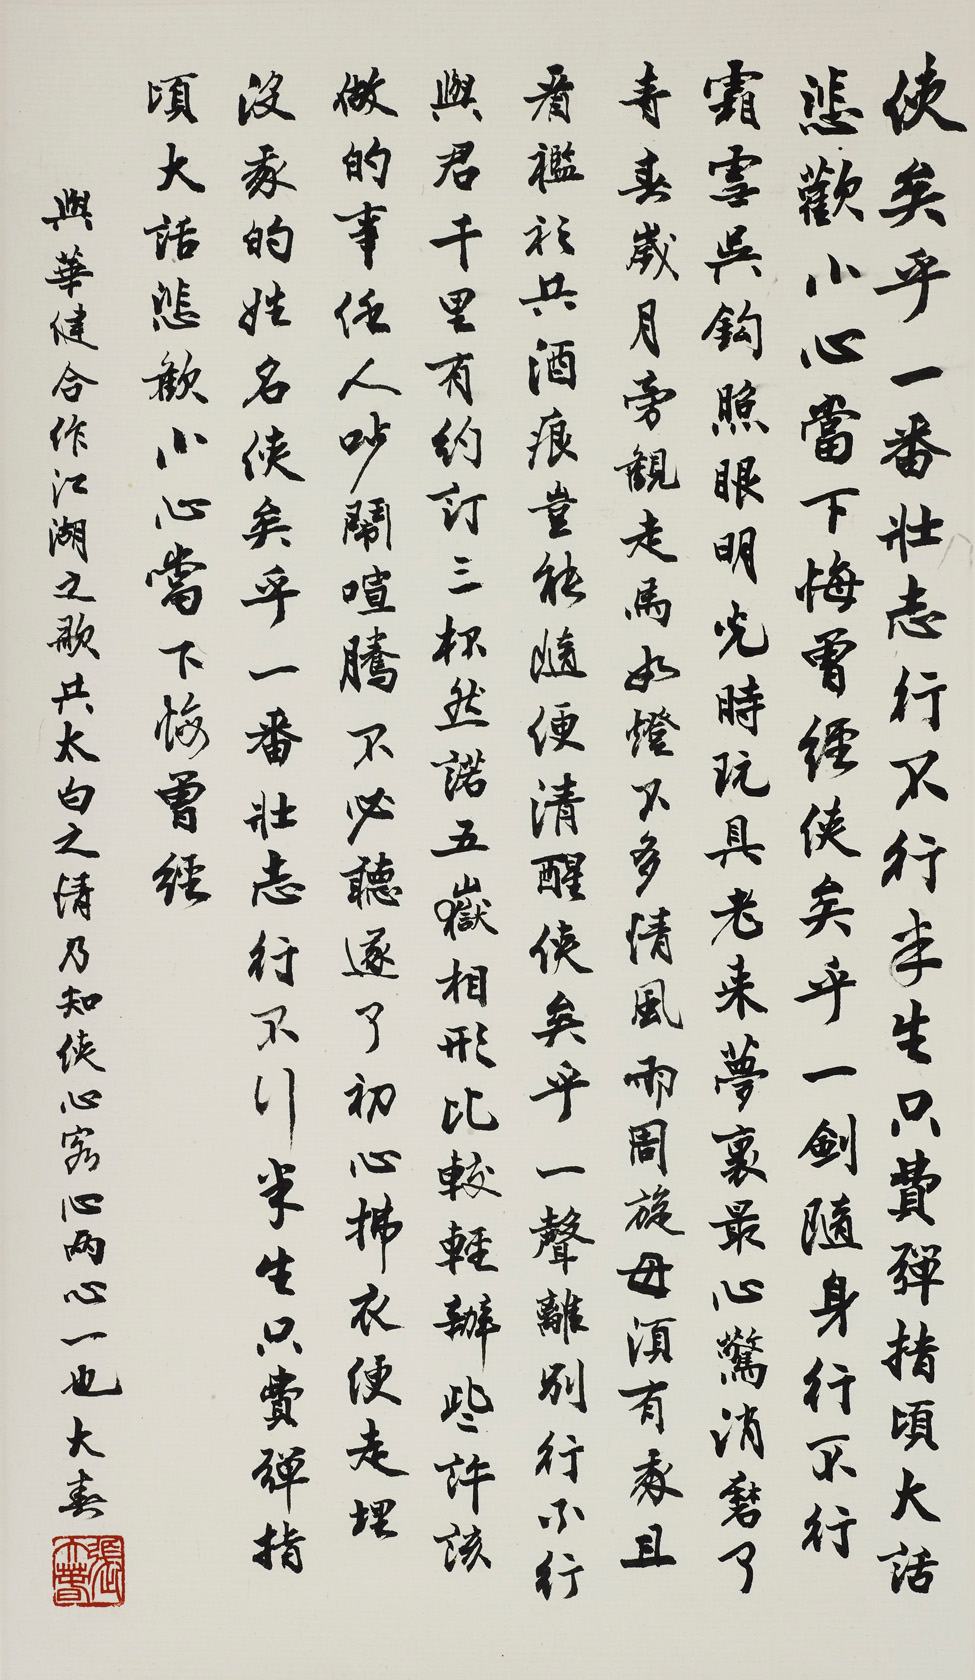 俠矣乎一番壯志行不行半生只費彈指頃大話
悲歡小心當下悔曾經俠矣乎一劍隨身行不行
霜雪吳鉤照眼明光時玩具老來夢裏最心驚消磨了
青春歲月旁觀走馬如燈不多情風雨周旋毋須有我且
看襤衫共酒痕豈能隨便清醒俠矣乎一聲離別行不行
與君千里有約訂三杯然諾五嶽相形比較輕辦些許該
做的事任人吵鬧喧騰不必聽遂了初心拂衣便走埋
沒我的姓名俠矣乎一番壯志行不行半生只費彈指
頃大話悲歡小心當下悔曾經
與華健合作江湖之歌共太白之情乃知俠心客心兩心一也大春
張大春